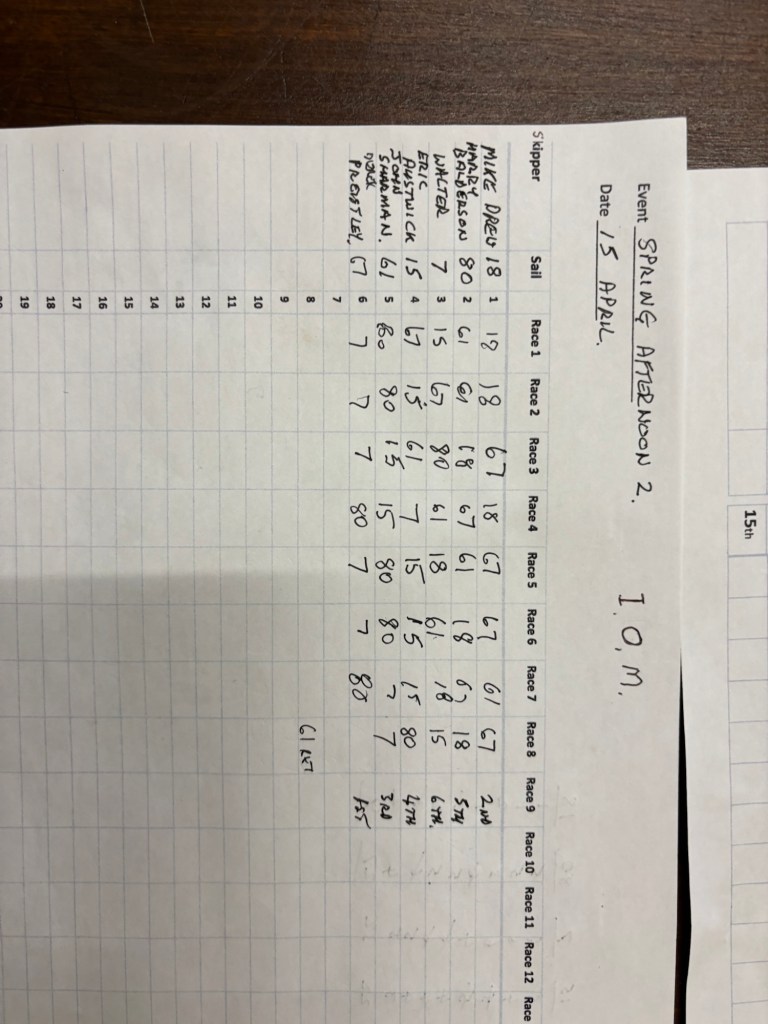 15th
Event SPRING AFTERNOON 2. I.O.M.
Date 15 APRIL.
Skipper Sail Race 1 Race 2 Race 3 Race 4 Race 5 Race 6 Race 7 Race 8 Race 9 Race 10 Race 11 Race 12 Race
MIKE DREW 18 1 18 18 67 18 67 67 61 67 2ND
HARRY BALDERSON 80 2 61 61 18 67 61 18 67 18 5TH
WALTER 7 3 15 67 80 61 18 61 18 15 6TH.
ERIC AUSTWICK 15 4 67 15 61 7 15 15 15 80 4TH
JOHN SHARMAN. 61 5 80 80 15 15 80 80 7 7 3RD
PRIESTLEY, 67 6 7 7 7 80 7 7 80 1ST
7
8 61 RET
9
10
11
12
13
14
15
16
17
18
19